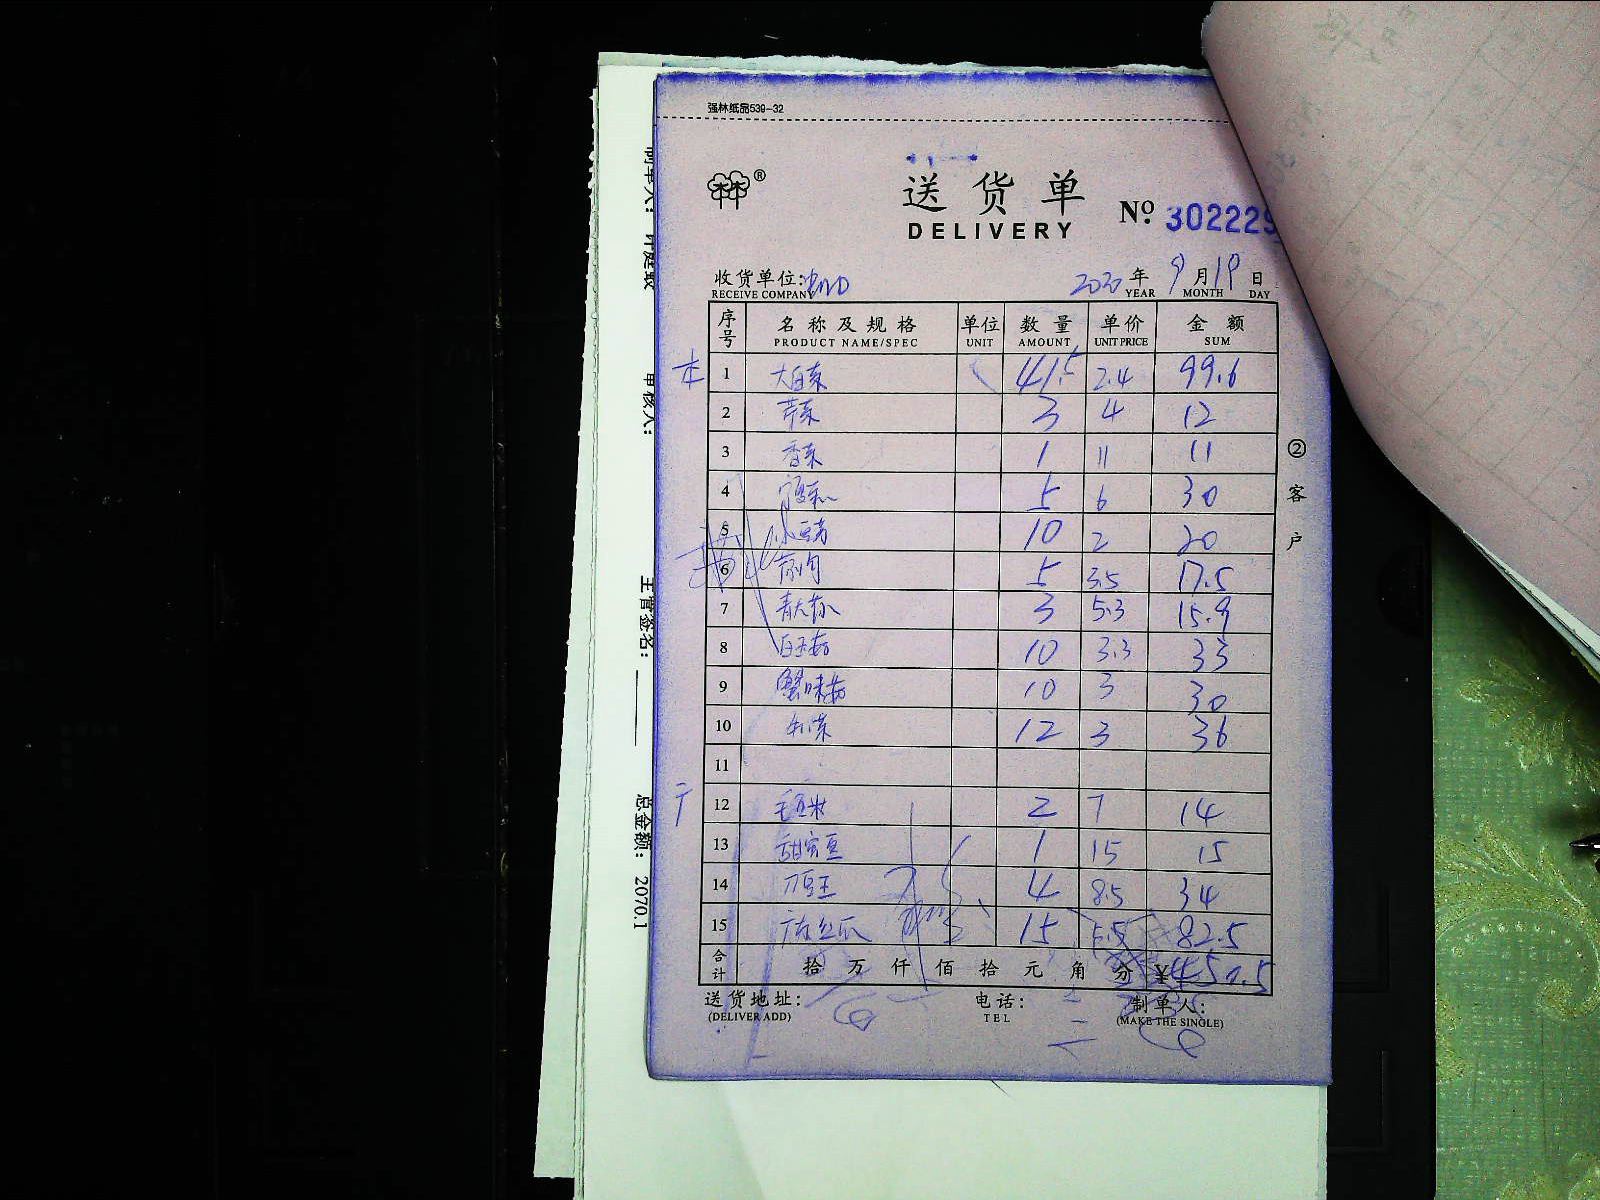 强林纸品539-32
®
送货单
DELIVERY
No 302229
收货单位:
RECEIVE COMPANY
2020年 9月19日
YEAR MONTH DAY
序号 名称及规格 单位 数量 单价 金额
PRODUCT NAME/SPEC UNIT AMOUNT UNIT PRICE SUM
本 1 大白菜 41.5 2.4 99.6
2 芹菜 3 4 12
3 香菜 1 11 11
4 5 6 30
5 10 2 20
6 5 3.5 17.5
7 3 5.3 15.9
8 白玉菇 10 3.3 33
9 蟹味菇 10 3 30
10 12 3 36
11
12 毛豆米 2 7 14
13 甜蜜豆 1 15 15
14 刀豆王 4 8.5 34
15 丝瓜 15 5.5 82.5
合计 拾 万 仟 佰 拾 元 角 分 ¥
送货地址: 电话: 制单人:
(DELIVER ADD) TEL (MAKE THE SINGLE)
②客户
制单人:
审核人:
主管签名:
总金额: 2070.1